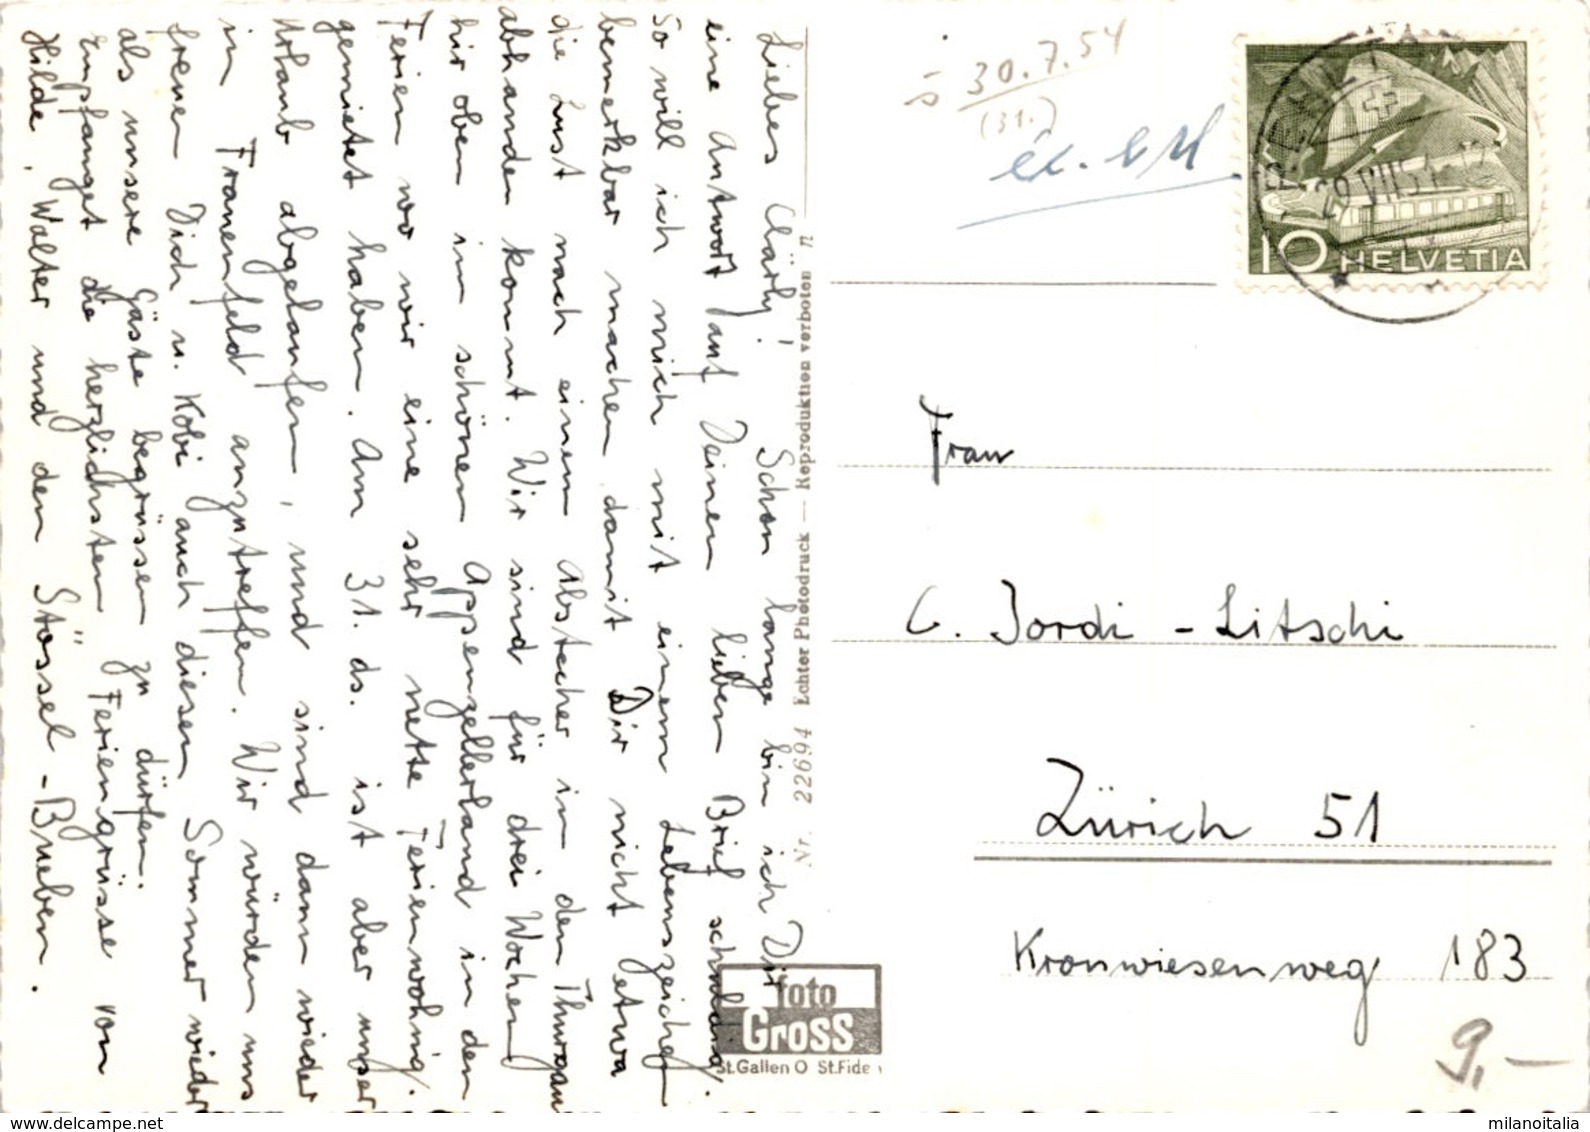 Liebes Clärly! Schon lange bin ich Dir
eine Antwort auf Deinen lieben Brief schuldig.
So will ich mich mit einem Lebenszeichen
bemerkbar machen, damit Dir nicht etwa
die Lust nach einem Abstecher in den Thurgau
abhanden kommt. Wir sind für drei Wochen
hir oben im schönen Appenzellerland in den
Ferien wo wir eine sehr nette Ferienwohng.
gemietet haben. Am 31. ds. ist aber unser
Urlaub abgelaufen, und sind dann wieder
in Frauenfeld anzutreffen. Wir würden uns
freuen Dich u. Köbi auch diesen Sommer wieder
als unsere Gäste begrüssen zu dürfen.
Empfanget die herzlichsten Feriengrüsse von
Hilde, Walter und den Stössel-Bueben.
Nr. 22694 Echter Photodruck — Reproduktion verboten
foto
Gross
St.Gallen O St.Fide
30.7.54
(31.)
VII 54
10 HELVETIA
Frau
C. Jordi - Litschi
Zürich 51
Kronwiesenweg 183
9,—
milanoitalia